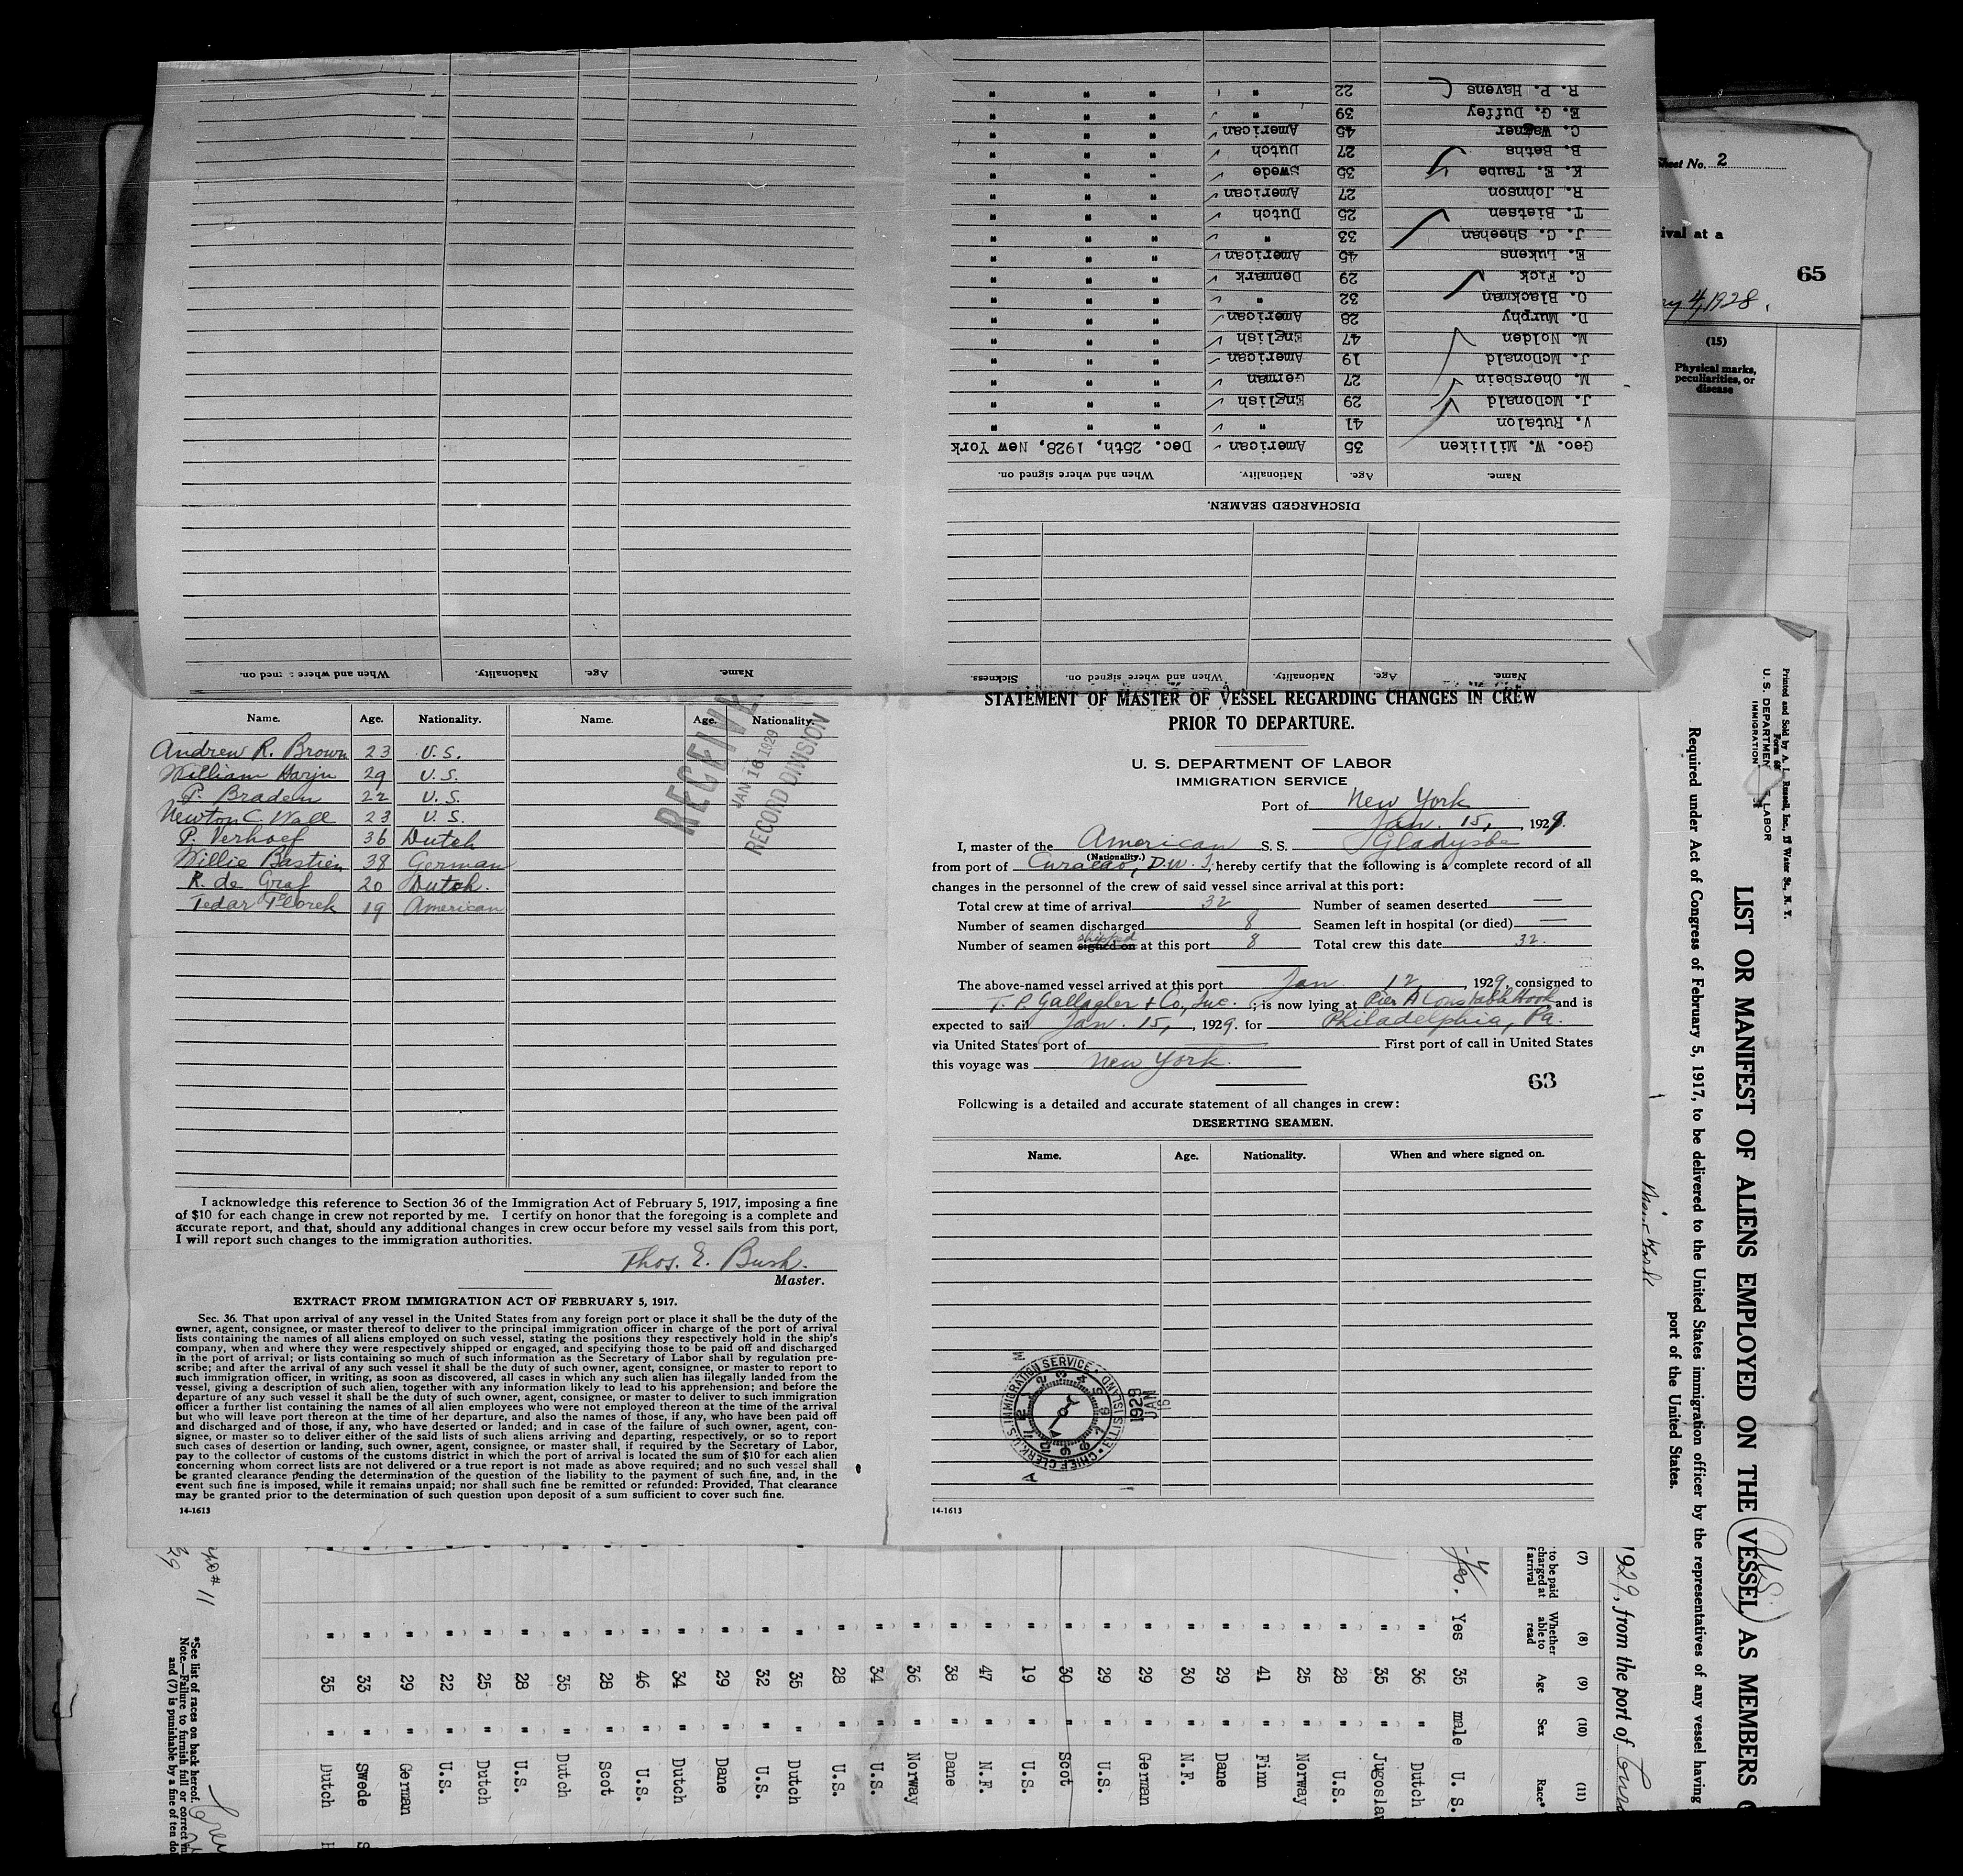 Geo. W. Milliken 35 American Dec. 25th, 1928, New York
V. Rutalon 41 " " " "
J. McDonald 29 English " " "
M. Oberspein 27 German " " "
J. McDonald 19 American " " "
M. Nolden 47 English " " "
D. Murphy 28 American " " "
O. Blackman 32 " " " "
C. Fick 29 Denmark " " "
E. Lukens 45 American " " "
J. C. Sheehan 33 " " " "
T. Bietsen 25 Dutch " " "
R. Johnson 27 American " " "
K. E. Taube 35 Swede " " "
B. Beths 27 Dutch " " "
C. Wagner 45 American " " "
E. G. Duffey 39 " " " "
R. P. Havens 22 " " " "
Name. Age. Nationality. When and where signed on.
DISCHARGED SEAMEN.
Name. Age. Nationality. When and where signed on. Sickness.
Name. Age. Nationality. When and where signed on.
Sheet No. 2
ival at a
65
ry 4, 1928.
(15)
Physical marks,
peculiarities, or
disease
Name. Age. Nationality. Name. Age. Nationality.
Andrew R. Brown 23 U.S.
William Harju 29 U.S.
P. Braden 22 U.S.
Newton C. Wall 23 U.S.
P. Verhoef 36 Dutch
Willie Bastien 38 German
R. de Graf 20 Dutch.
Tedar Florek 19 American
RECEIVE
JAN 16 1929
RECORD DIVISION
I acknowledge this reference to Section 36 of the Immigration Act of February 5, 1917, imposing a fine
of $10 for each change in crew not reported by me. I certify on honor that the foregoing is a complete and
accurate report, and that, should any additional changes in crew occur before my vessel sails from this port,
I will report such changes to the immigration authorities.
Thos. E. Bush.
Master.
EXTRACT FROM IMMIGRATION ACT OF FEBRUARY 5, 1917.
Sec. 36. That upon arrival of any vessel in the United States from any foreign port or place it shall be the duty of the
owner, agent, consignee, or master thereof to deliver to the principal immigration officer in charge of the port of arrival
lists containing the names of all aliens employed on such vessel, stating the positions they respectively hold in the ship's
company, when and where they were respectively shipped or engaged, and specifying those to be paid off and discharged
in the port of arrival; or lists containing so much of such information as the Secretary of Labor shall by regulation pre-
scribe; and after the arrival of any such vessel it shall be the duty of such owner, agent, consignee, or master to report to
such immigration officer, in writing, as soon as discovered, all cases in which any such alien has illegally landed from the
vessel, giving a description of such alien, together with any information likely to lead to his apprehension; and before the
departure of any such vessel it shall be the duty of such owner, agent, consignee, or master to deliver to such immigration
officer a further list containing the names of all alien employees who were not employed thereon at the time of the arrival
but who will leave port thereon at the time of her departure, and also the names of those, if any, who have been paid off
and discharged and of those, if any, who have deserted or landed; and in case of the failure of such owner, agent, con-
signee, or master so to deliver either of the said lists of such aliens arriving and departing, respectively, or so to report
such cases of desertion or landing, such owner, agent, consignee, or master shall, if required by the Secretary of Labor,
pay to the collector of customs of the customs district in which the port of arrival is located the sum of $10 for each alien
concerning whom correct lists are not delivered or a true report is not made as above required; and no such vessel shall
be granted clearance pending the determination of the question of the liability to the payment of such fine, and, in the
event such fine is imposed, while it remains unpaid; nor shall such fine be remitted or refunded: Provided, That clearance
may be granted prior to the determination of such question upon deposit of a sum sufficient to cover such fine.
14-1613
STATEMENT OF MASTER OF VESSEL REGARDING CHANGES IN CREW
PRIOR TO DEPARTURE.
U. S. DEPARTMENT OF LABOR
IMMIGRATION SERVICE
Port of New York
Jan. 15, 1929.
I, master of the American S. S. Gladysbe
(Nationality.)
from port of Curacao, D.W.I, hereby certify that the following is a complete record of all
changes in the personnel of the crew of said vessel since arrival at this port:
Total crew at time of arrival 32 Number of seamen deserted —
Number of seamen discharged 8 Seamen left in hospital (or died) —
Number of seamen signed on shipped at this port 8 Total crew this date 32.
The above-named vessel arrived at this port Jan. 12, 1929, consigned to
T. P. Gallagher & Co, Inc. ; is now lying at Pier A Constable Hook and is
expected to sail Jan. 15, 1929. for Philadelphia, Pa.
via United States port of — First port of call in United States
this voyage was New York.
63
Following is a detailed and accurate statement of all changes in crew:
DESERTING SEAMEN.
Name. Age. Nationality. When and where signed on.
CHIEF CLERK U.S. IMMIGRATION SERVICE ELLIS ISLAND
JAN 15 1929
14-1613
Printed and Sold by A. L. Russell, Inc., Water St., N. Y.
U. S. DEPARTMENT LABOR
IMMIGRATION
LIST OR MANIFEST OF ALIENS EMPLOYED ON THE VESSEL AS MEMBERS
Required under Act of Congress of February 5, 1917, to be delivered to the United States immigration officer by the representatives of any vessel having
port of the United States.
1929, from the port of
(7) (8) (9) (10) (11)
to be paid
charged at
f arrival
Whether
able to
read
Age
Sex
Race*
Yes. Yes 35 male U. S.
" 36 " Dutch
" 35 " Jugosla
" 28 " U.S.
" 25 " Norway
" 41 " Finn
" 29 " Dane
" 30 " N.F.
" 29 " German
" 29 " U.S.
" 30 " Scot
" 19 " U.S.
" 47 " N.F.
" 38 " Dane
" 36 " Norway
" 34 " U.S.
" 28 " U.S.
" 35 " Dutch
" 32 " U.S.
" 29 " Dane
" 34 " Dutch
" 46 " U.S.
" 28 " Scot
" 35 " Dutch
" 28 " U.S.
" 25 " Dutch
" 22 " U.S.
" 29 " German
" 33 " Swede
" 35 " Dutch
*See list of races on back hereof.
Note.—Failure to furnish full or correct
and (7) is punishable by a fine of ten do